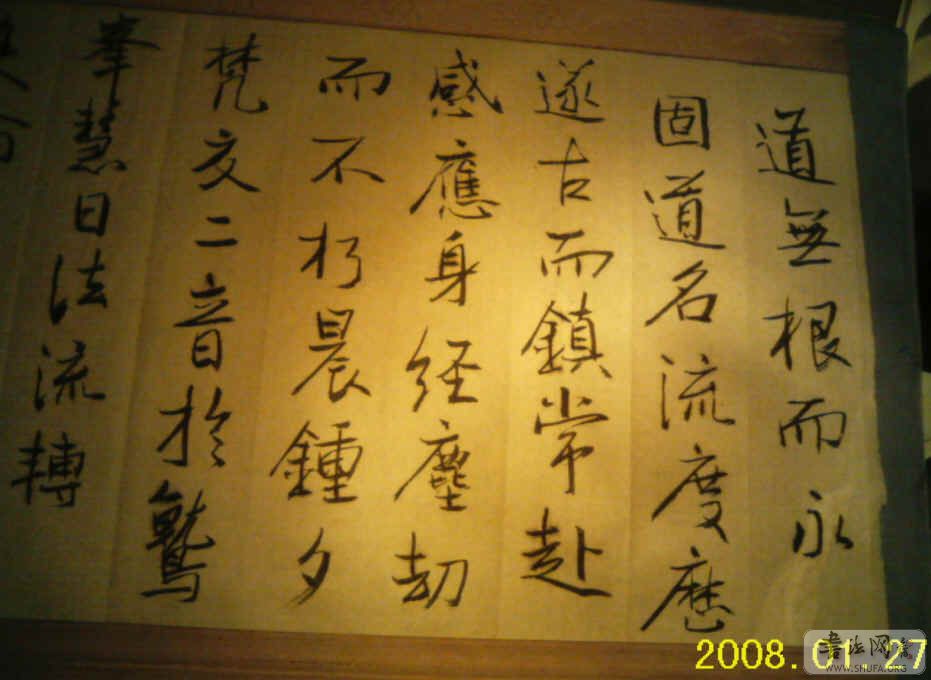 道無根而永
固道名流度歷
遂古而鎮常赴
感應身經塵劫
而不朽晨鍾夕
梵交二音於鷲
峯慧日法流轉
2008.01.27
WWW.SHUFA.ORG